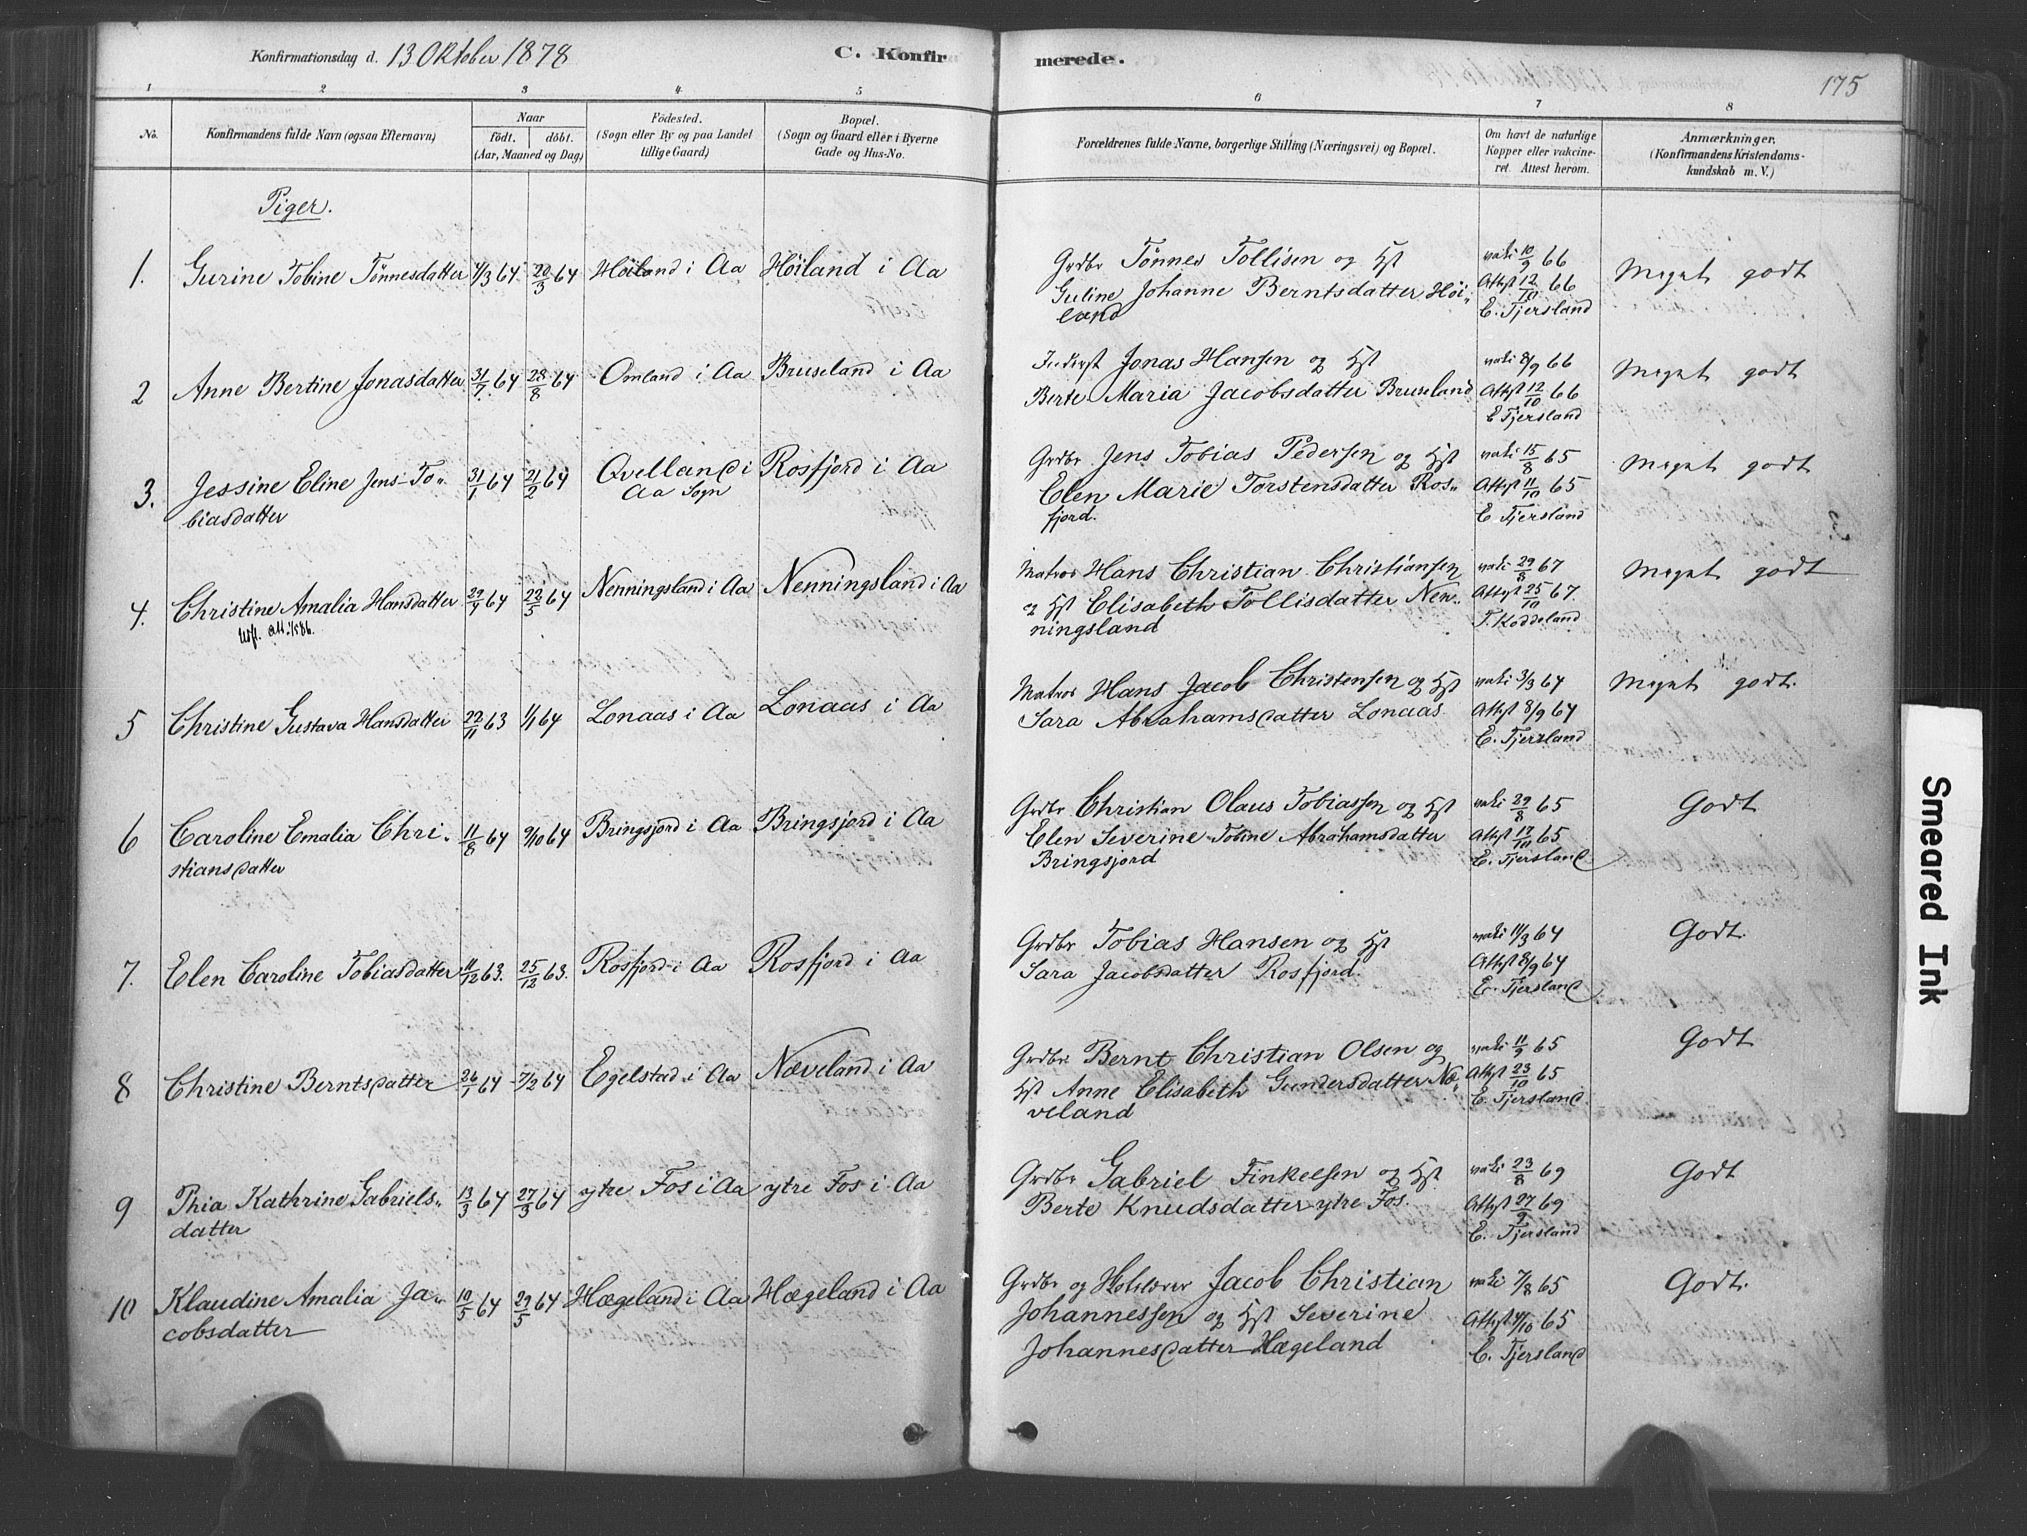 Konfirmationsdag d. 13 Oktober 1878
C. Konfirmerede.
175
1 2 3 4 5 6 7 8
No.
Konfirmandens fulde Navn (ogsaa Efternavn)
Naar
födt. döbt.
(Aar, Maaned og Dag)
Födested.
(Sogn eller By og paa Landet
tillige Gaard)
Bopæl.
(Sogn og Gaard eller i Byerne
Gade og Hus-No.
Forældrenes fulde Navne, borgerlige Stilling (Næringsvei) og Bopæl.
Om havt de naturlige
Kopper eller vakcine-
ret. Attest herom.
Anmærkninger.
(Konfirmandens Kristendoms-
kundskab m. V.)
Piger.
1. Gurine Tobine Tønnesdatter 4/3 64 20/3 64 Høiland i Aa Høiland i Aa
Grdbr Tønnes Tollisen og Hst
Guline Johanne Berntsdatter Høi-
land
vaki 10/9 66
Attest 12/10 66
E. Tjersland
Meget godt
2 Anne Bertine Jonasdatter 31/7 64 28/8 64 Omland i Aa Bruseland i Aa
Jonas Hansen og Hst
Berte Maria Jacobsdatter Bruseland
vaki 8/9 66
Attest 12/10 66
E Tjersland
Meget godt
3. Jessine Eline Jens-To-
biasdatter
31/1 64 21/2 64 Qvelland i
Aa Sogn
Rosfjord i Aa
Grdbr Jens Tobias Pedersen og Hst
Elen Marie Torstensdatter Ros-
fjord.
vaki 15/8 65
Attest 11/10 65
E Tjersland
Meget godt
4. Christine Amalia Hansdatter
29/4 64 22/5 64 Nenningsland i Aa Nenningsland i Aa
Matros Hans Christian Christiansen
og Hst Elisabeth Tollisdatter Nen-
ningsland
vaki 29/8 67
Attest 25/10 67.
T. Koddeland
Meget godt
5 Christine Gustava Hansdatter 22/11 63 1/1 64 Lonaas i Aa Lonaas i Aa
Matros Hans Jacob Christensen og Hst
Sara Abrahamsdatter Lonaas
vaki 3/3 64
Attest 8/9 64
E. Tjersland
Meget godt.
6 Caroline Emalia Chri-
stiansdatter
11/8 64 9/10 64 Bringsjord i Aa Bringsjord i Aa
Grdbr Christian Olaus Tobiassen og Hst
Elen Severine Tobine Abrahamsdatter
Bringsjord
vaki 29/8 65
Attest 12/10 65
E. Tjersland
Godt
7. Elen Caroline Tobiasdatter 11/12 63. 25/12 63. Rosfjord i Aa Rosfjord i Aa
Grdbr Tobias Hansen og Hst
Sara Jacobsdatter Rosfjord.
vaki 11/3 64
Attest 8/9 64
E. Tjersland
Godt.
8 Christine Berntsdatter 26/1 64 7/2 64 Egelstad i Aa Næveland i Aa
Grdbr Bernt Christian Olsen og
Hst Anne Elisabeth Gundersdatter Næ-
veland
vaki 11/9 65
Attest 23/10 65
E. Tjersland
Godt
9 Thia Kathrine Gabriels-
datter
13/3 64 27/3 64 ytre Fos i Aa ytre Fos i Aa
Grdbr Gabriel Finkelsen og Hst
Berte Knudsdatter ytre Fos.
vaki 23/8 69
Attest 27/9 69
E. Tjersland
Godt
10 Klaudine Amalia Ja-
cobsdatter
10/5 64 29/5 64 Hægeland i Aa Hægeland i Aa
Grdbr og Jacob Christian
Johannessen og Hst Severine
Johannesdatter Hægeland
vaki 7/8 65
Attest 4/10 65
E. Tjersland
Godt.
Smeared Ink